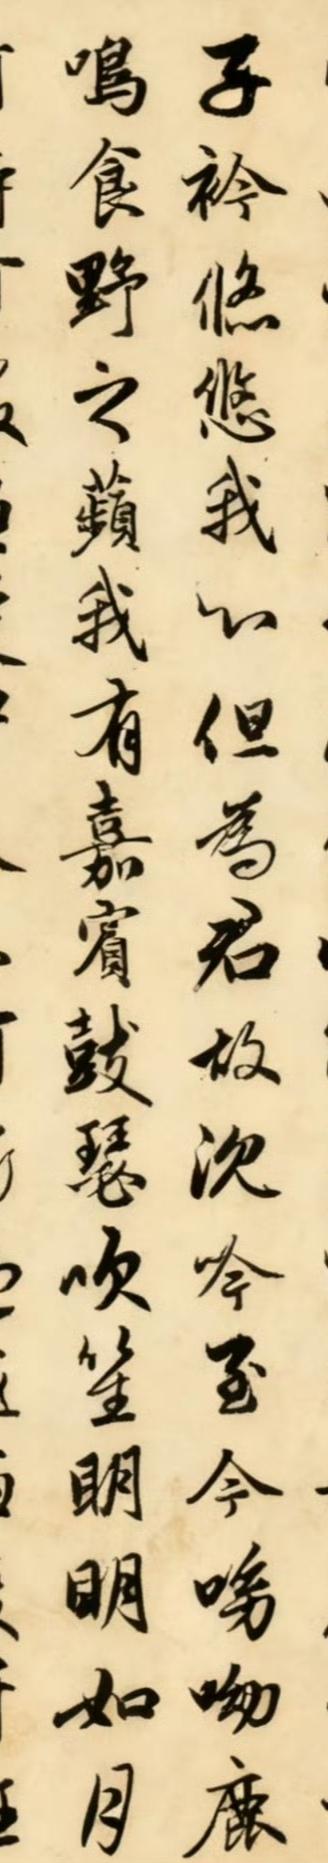 子衿悠悠我心但為君故沈吟至今呦呦鹿
鳴食野之蘋我有嘉賓鼓瑟吹笙明明如月